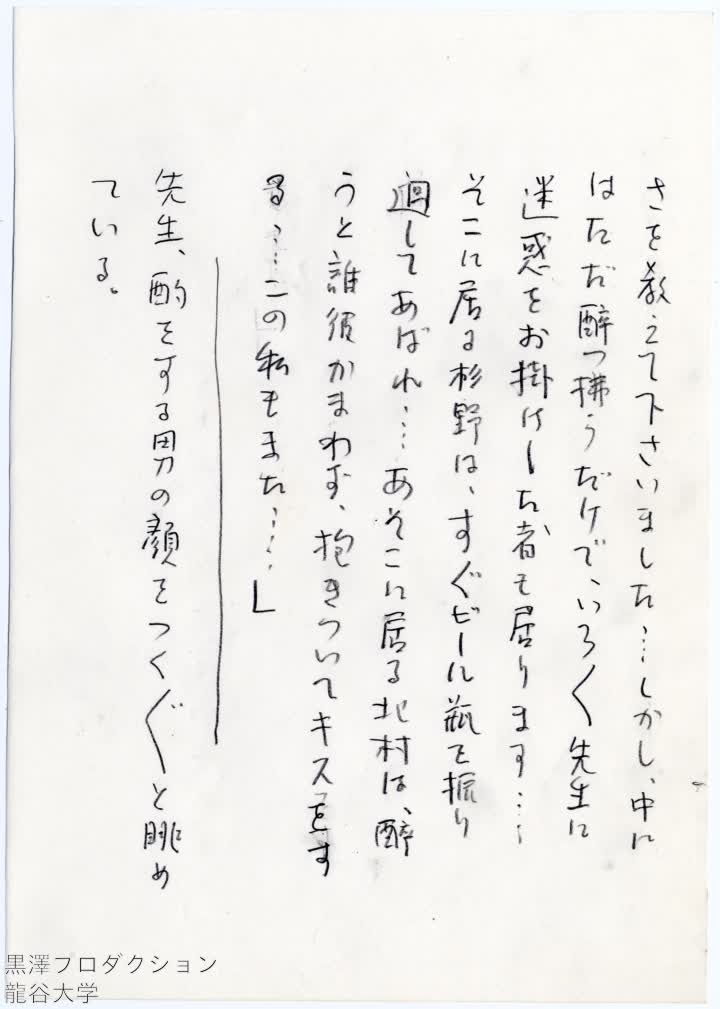 さを教えて下さいました…しかし、中に
はただ醉つ拂うだけで、いろ〱先生に
迷惑をお掛けした者も居ります…
そこに居る杉野は、すぐビール瓶を振り
廻してあばれ…あそこに居る北村は、醉
うと誰彼かまわず、抱きついてキスをす
る…この私もまた…」
先生、酌をする男の顔をつく〲と眺め
ている。
黒澤プロダクション
龍谷大学